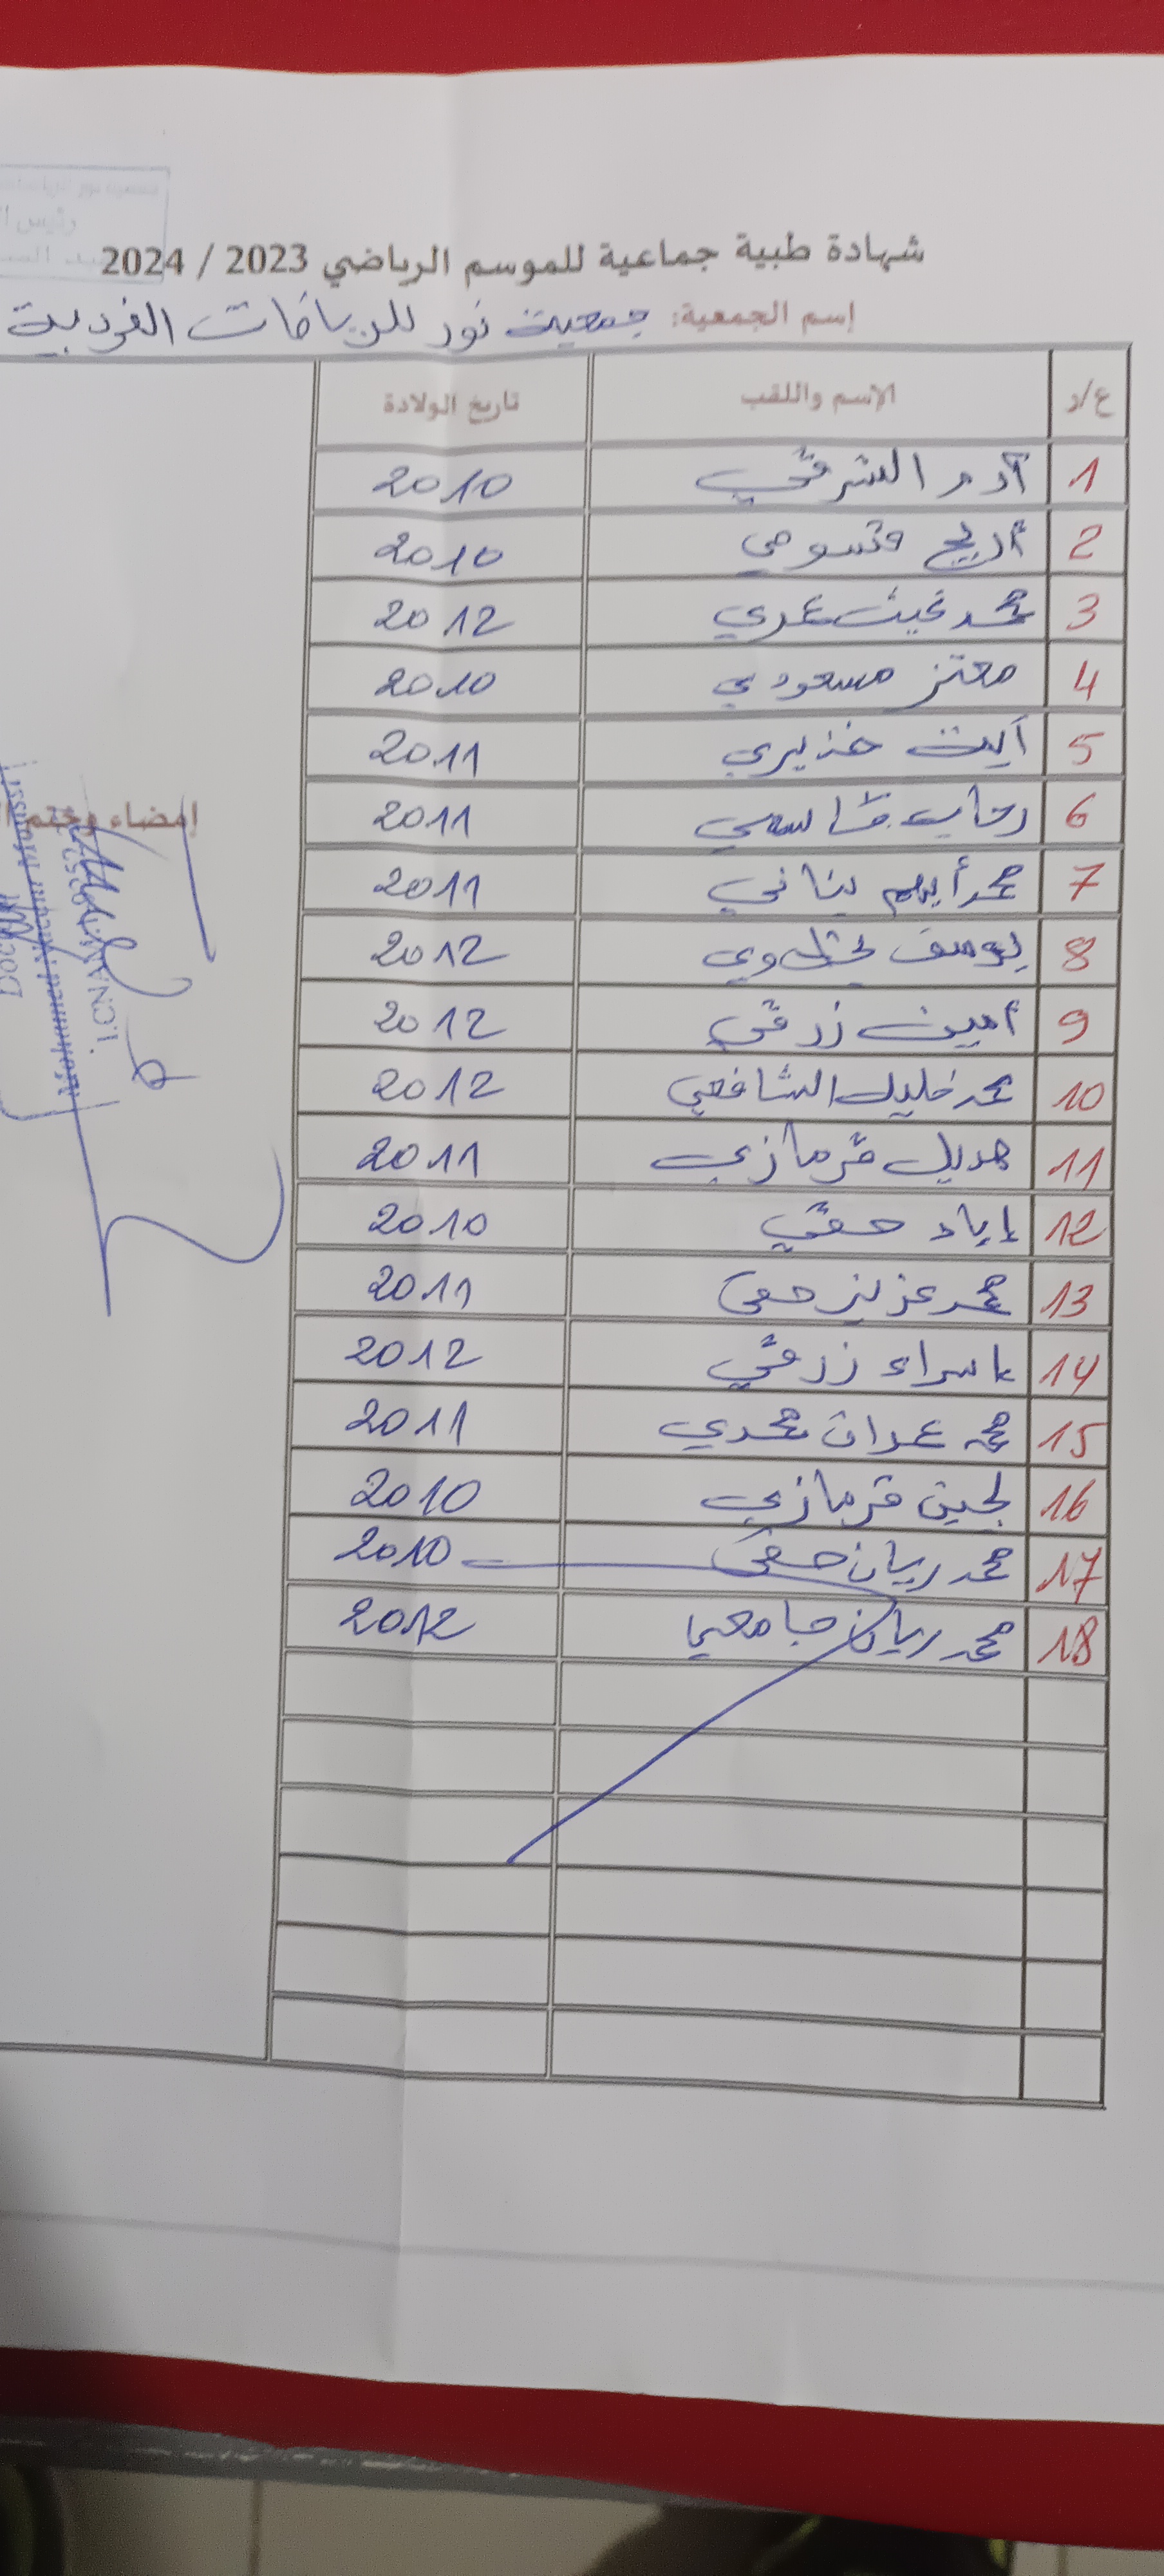 رئيس
شهادة طبية جماعية للموسم الرياضي 2023 / 2024
إسم الجمعية: جمعية نور للرياضات الفردية
ع/د الإسم واللقب تاريخ الولادة
1 آدم الشرقي 2010
2 أريج قسومي 2010
3 محمد غيث عمري 2012
4 معتز مسعودي 2010
5 آية خذيري 2011
6 رحاب قاسمي 2011
7 محمد أيهم بناني 2011
8 يوسف 2012
9 أمين زرقي 2012
10 محمد خليل الشافعي 2012
11 هديل قرمازي 2011
12 إياد حقي 2010
13 محمد عزيز حقي 2011
14 إسراء زرقي 2012
15 محمد عمران محمدي 2011
16 لجين قرمازي 2010
17 محمد ريان حقي 2010
18 محمد ريان جامعي 2012
إمضاء وختم
Mohamed